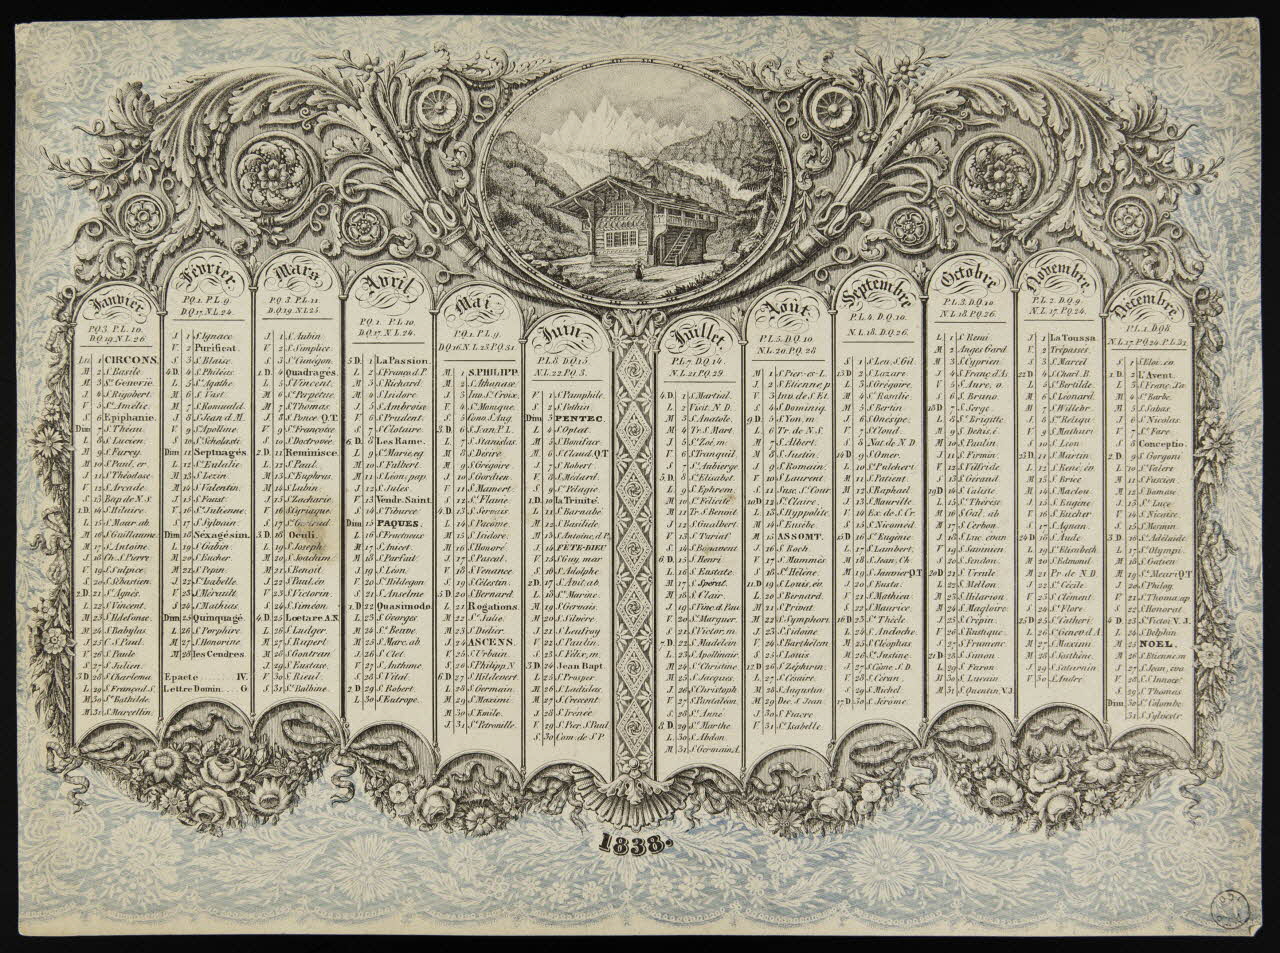 Janvier.
P.Q.3. P.L.10.
D.Q.19. N.L.26
Lu 1 CIRCONS.
M 2 S. Basile
M 3 Ste Geneviè.
J 4 S. Rigobert
V 5 Ste Amélie
S 6 Epiphanie.
Dim 7 S. Théau
L 8 S. Lucien
M 9 S. Furcy
M 10 S. Paul, er.
J 11 S. Théodose
V 12 S. Arcade
S 13 Bap de N.S.
1.D. 14 S. Hilaire
L 15 S. Maur ab.
M 16 S. Guillaume
M 17 S. Antoine
J 18 Ch. S. Pierre
V 19 S. Sulpice
S 20 S. Sébastien
2.D. 21 Ste Agnès
L 22 S. Vincent
M 23 S. Ildefonse
M 24 S. Babylas
J 25 C. S. Paul
V 26 Ste Paule
S 27 S. Julien
3.D 28 S. Charlema.
L 29 S. François S.
M 30 Ste Bathilde
M 31 S. Marcellin
Février.
P.Q.1. P.L.9.
D.Q.17. N.L.24.
J 1 S. Ignace
V 2 Purificat.
S 3 S. Blaise
4.D. 4 S. Philéas
L 5 Ste Agathe
M 6 S. Vast
M 7 S. Romuald
J 8 S. Jean d.M.
V 9 Ste Apolline
S 10 Ste Scholasti.
Dim 11 Septuagés.
L 12 Ste Eulalie
M 13 S. Lezin
M 14 S. Valentin
J 15 S. Faust
V 16 Ste Julienne
S 17 S. Sylvain
Dim 18 Sexagésim.
L 19 S. Gabin
M 20 S. Eucher
M 21 S. Pepin
J 22 Ste Isabelle
V 23 S. Mérault
S 24 S. Mathias
Dim 25 Quinquagé.
L 26 S. Porphire
M 27 Ste Honorine
M 28 les Cendres.
Epacte ...... IV.
Lettre Domin.... G
Mars.
P.Q.3. P.L.11.
D.Q.19. N.L.25.
J 1 S. Aubin
V 2 S. Simplice
S 3 Ste Cunégon.
1.D. 4 Quadragés.
L 5 S. Vincent
M 6 Ste Perpétue
M 7 S. Thomas
J 8 S. Ponce. Q.T.
V 9 Ste Françoise
S 10 S. Doctrovée
2.D. 11 Reminisce.
L 12 S. Paul
M 13 Ste Euphras.
M 14 S. Lubin
J 15 S. Zacharie
V 16 S. Cyriaque
S 17 Ste Gertrud
3.D 18 Oculi.
L 19 S. Joseph
M 20 S. Joachim
M 21 S. Benoit
J 22 S. Paul, év.
V 23 S. Victorin
S 24 S. Siméon
4.D 25 Lœtare A.N.
L 26 S. Ludger
M 27 S. Rupert
M 28 S. Gontran
J 29 S. Eustase
V 30 S. Rieul
S 31 Ste Balbine
Avril
P.Q.1. P.L.10.
D.Q.17. N.L.24.
5 D. 1 La Passion.
L 2 S. Franç. d.P.
M 3 S. Richard
M 4 S. Isidore
J 5 S. Ambroise
V 6 S. Prudent
S 7 S. Clotaire
6 D. 8 Les Rame.
L 9 Ste Marie eg
M 10 S. Fulbert
M 11 S. Léon, pap.
J 12 S. Jules
V 13 Vendr. Saint.
S 14 S. Tiburce
Dim 15 PAQUES.
L 16 S. Fructueux
M 17 S. Anicet
M 18 S. Parfait
J 19 S. Léon
V 20 S. Hildegon
S 21 S. Anselme
1.D 22 Quasimodo.
L 23 S. Georges
M 24 Ste Beuve
M 25 S. Marc. ab
J 26 S. Clet
V 27 S. Anthime
S 28 S. Vital
2 D 29 S. Robert
L 30 S. Eutrope
Mai
P.Q.1. P.L.9.
D.Q.16. N.L.23. P.Q.31.
M 1 S. PHILIPP.
M 2 S. Athanase
J 3 Inv. Ste Croix
V 4 Ste Monique
S 5 Conv. S. Aug.
3 D. 6 S. Jean P.L.
L 7 S. Stanislas
M 8 S. Désiré
M 9 S. Grégoire
J 10 S. Gordien
V 11 S. Mamert
S 12 Ste Flavie
4.D. 13 S. Servais
L 14 S. Pacome
M 15 S. Isidore
M 16 S. Honoré
J 17 S. Pascal
V 18 S. Venance
S 19 S. Célestin
5.D. 20 S. Bernard
L 21 Rogations.
M 22 Ste Julie
M 23 S. Didier
J 24 ASCENS.
V 25 S. Urbain
S 26 S. Philipp. N
6.D. 27 S. Hildevert
L 28 S. Germain
M 29 S. Maximi
M 30 S. Emile
J 31 Ste Petronille
Juin
P.L.8. D.Q.15
N.L.22. P.Q.3.
V 1 S. Pamphile
S 2 S. Pothin
Dim 3 PENTEC.
L 4 S. Optat
M 5 S. Boniface
M 6 S. Claud. Q.T
J 7 S. Robert
V 8 S. Médard
S 9 Ste Pélagie
1.D. 10 la Trinité.
L 11 S. Barnabé
M 12 S. Basilide
M 13 S. Antoine, d.P.
J 14 FÊTE-DIEU
V 15 S. Guy, mar
S 16 S. Adolphe
2.D. 17 S. Avit. ab
L 18 Ste Marine
M 19 S. Gervais
M 20 S. Silvère
J 21 S. Leufroy
V 22 S. Paulin
S 23 S. Félix, m.
3 D. 24 Jean Bapt.
L 25 S. Prosper
M 26 S. Ladislas
M 27 S. Crescent
J 28 S. Irénée
V 29 S. Pier. S. Paul
S. 30 Com. de S.P.
Juillet.
P.L.7. D.Q.14.
N.L.21. P.Q.29.
4 D. 1 S. Martial
L 2 Visit. N.D.
M 3 S. Anatole
M 4 Tr. S. Mart.
J 5 Ste Zoé, m
V 6 S. Tranquil
S 7 Ste Aubierge
5.D. 8 Ste Elisabet
L 9 S. Ephrem
M 10 Ste Félicité
M 11 Tr. S. Benoit
J 12 S. Gualbert
V 13 S. Turiaf
S 14 S. Bonavent
6 D. 15 S. Henri
L 16 S. Eustate
M 17 S. Spérat
M 18 S. Clair
J 19 S. Vinc. d. Pau
V 20 Ste Marguer.
S 21 S. Victor. m
7.D. 22 Ste Madelein
L 23 S. Apollinair
M 24 Ste Christine
M 25 S. Jacques
J 26 S. Christoph
V 27 S. Pantaléon
S 28 Ste Anne
8 D 29 Ste Marthe
L 30 S. Abdon
M 31 S. Germain A.
Août
P.L.5. D.Q.10
N.L.20. P.Q.28
M 1 S. Pier-ès-L.
J 2 S. Etienne p.
V 3 Inv. de S. Et.
S 4 S. Dominiq.
9 D 5 S. Yon, m
L 6 Tr. de N.S.
M 7 S. Albert
M 8 S. Justin
J 9 S. Romain
V 10 S. Laurent
S 11 Susc. Ste Cour
10 D 12 Ste Claire
L 13 S. Hyppolite
M 14 S. Eusèbe
M 15 ASSOMT.
J 16 S. Roch
V 17 S. Mammès
S 18 Ste Hélène
11.D. 19 S. Louis, év.
L 20 S. Bernard
M 21 S. Privat
M 22 S. Symphori.
J 23 S. Sidoine
V 24 S. Barthélem
S 25 S. Louis
12 D 26 S. Zéphirin
L 27 S. Césaire
M 28 S. Augustin
M 29 Déc. S. Jean
J 30 S. Fiacre
V 31 Ste Isabelle
Septembre.
P.L.4. D.Q.10.
N.L.18. D.Q.26.
S 1 S. Leu, S. Gil
13 D 2 S. Lazare
L 3 S. Grégoire
M 4 Ste Rosalie
M 5 S. Bertin
J 6 S. Onésipe
V 7 S. Cloud
S 8 Nat. de N.D.
14 D 9 S. Omer
L 10 Ste Pulchert
M 11 S. Patient
M 12 S. Raphael
J 13 S. Maurille
V 14 Ex. de S. Cr.
S 15 S. Nicomed
15 D 16 Ste Eugénie
L 17 S. Lambert
M 18 S. Jean, Ch
M 19 S. Janvier Q.T
J 20 S. Eustac
V 21 S. Mathieu
S 22 S. Maurice
16 D 23 Ste Thècle
L 24 S. Andoche
M 25 S. Cléophas
M 26 Ste Justine
J 27 S. Côme, S. D.
V 28 S. Céran
S 29 S. Michel
17 D 30 S. Jérôme
Octobre
P.L.3. D.Q.10.
N.L.18. P.Q.26.
L 1 S. Remi
M 2 Anges Gard
M 3 S. Cyprien
J 4 S. Franç. d'As
V 5 S. Aure. v.
S 6 S. Bruno
18 D 7 S. Serge
L 8 Ste Brigitte
M 9 S. Denis, é
M 10 S. Paulin
J 11 S. Firmin
V 12 S. Vilfride
S 13 S. Géraud
19 D 14 S. Caliste
L 15 Ste Thérèse
M 16 S. Gal. ab
M 17 S. Cerbon
J 18 S. Luc, évan
V 19 S. Savinien
S 20 S. Sendon
20 D 21 Ste Ursule
L 22 S. Mellon
M 23 S. Hilarion
M 24 S. Magloire
J 25 S. Crépin
V 26 S. Rustique
S 27 S. Frumenc
21 D 28 S. Simon
L 29 S. Faron
M 30 S. Lucain
M 31 S. Quentin, V.J.
Novembre.
P.L.2. D.Q.9.
N.L.17. P.Q.24.
J 1 La Toussa
V 2 Trépassés
S 3 S. Marcel
22 D 4 S. Charl. B.
L 5 Ste Bertilde
M 6 S. Léonard
M 7 S. Willebr
J 8 Stes Reliqu
V 9 S. Mathuri
S 10 S. Léon
23 D 11 S. Martin
L 12 S. René, év
M 13 S. Brice
M 14 S. Maclou
J 15 S. Eugène
V 16 S. Eucher
S 17 S. Agnan
24 D 18 S. Aude
L 19 Ste Elisabeth
M 20 S. Edmond
M 21 Pr. de N.D.
J 22 Ste Cécile
V 23 S. Clément
S 24 Ste Flore
25 D 25 Ste Catheri
L 26 Ste Genev. d.A.
M 27 S. Maxim
M 28 S. Sosthène
J 29 S. Saturnin
V 30 S. André
Decembre.
P.L.1. D.Q.8.
N.L.17. P.Q.24. P.L.31
S 1 S. Eloi. év.
1.D. 2 L'Avent.
L 3 S. Franç. Xa
M 4 Ste Barbe
M 5 S. Sabas
J 6 S. Nicolas
V 7 Ste Fare
S 8 Conceptio.
2.D 9 S. Gorgoni
L 10 Ste Valere
M 11 S. Fuscien
M 12 S. Damase
J 13 Ste Luce
V 14 S. Nicaise
S 15 S. Mesmin
3.D 16 Ste Adélaïde
L 17 Ste Olympi.
M 18 S. Gatien
M 19 Ste Meuri Q.T
J 20 S. Philog
V 21 S. Thoma. ap
S 22 S. Honorat
4.D 23 Ste Victoi. V.J.
L 24 S. Delphin
M 25 NOEL.
M 26 S. Etienne, m
J 27 S. Jean, éva
V 28 S.S. Innoce
S 29 S. Thomas
Dim 30 Ste Colombe
L 31 S. Sylvestr
1838.